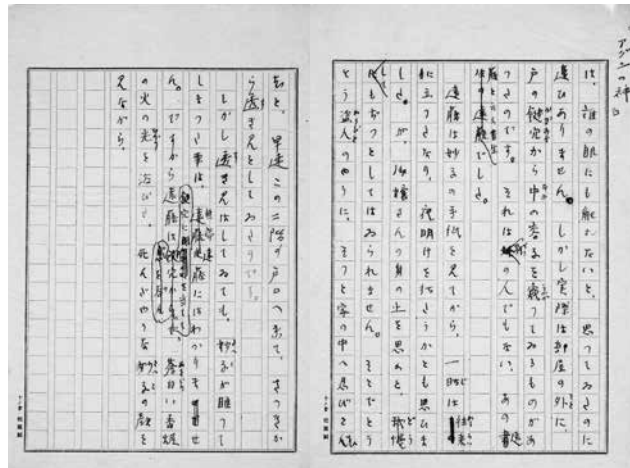 アグニの神
は、誰の眼にも触れないと、思つてゐたのに
違ひありません。しかし実際は部屋の外に、
戸の鍵穴から中の容子を窺つてゐるものがあ
つたのです。それは の人でもない、あの書
生の遠藤でした。
遠藤は妙子の手紙を見てから、一時は往来
に立つたなり、夜明けを待たうかとも思ひま
した。が、お嬢さんの身の上を思ふと、
してもぢつとしてはゐられません。そこでとう
とう盗人のやうに、そつと家の中へ忍びこん
と、早速この二階の戸口へ来て、さつきか
ら透き見をしてゐたのです。
しかし透き見をしてゐても、妙子が眠つて
しまつた事は、遠藤にはわかりませ
ん。ですから遠藤は鍵穴から、蒼白い香炉
の火の光を浴びた、死んだやうな妙子の顔を
見ながら、